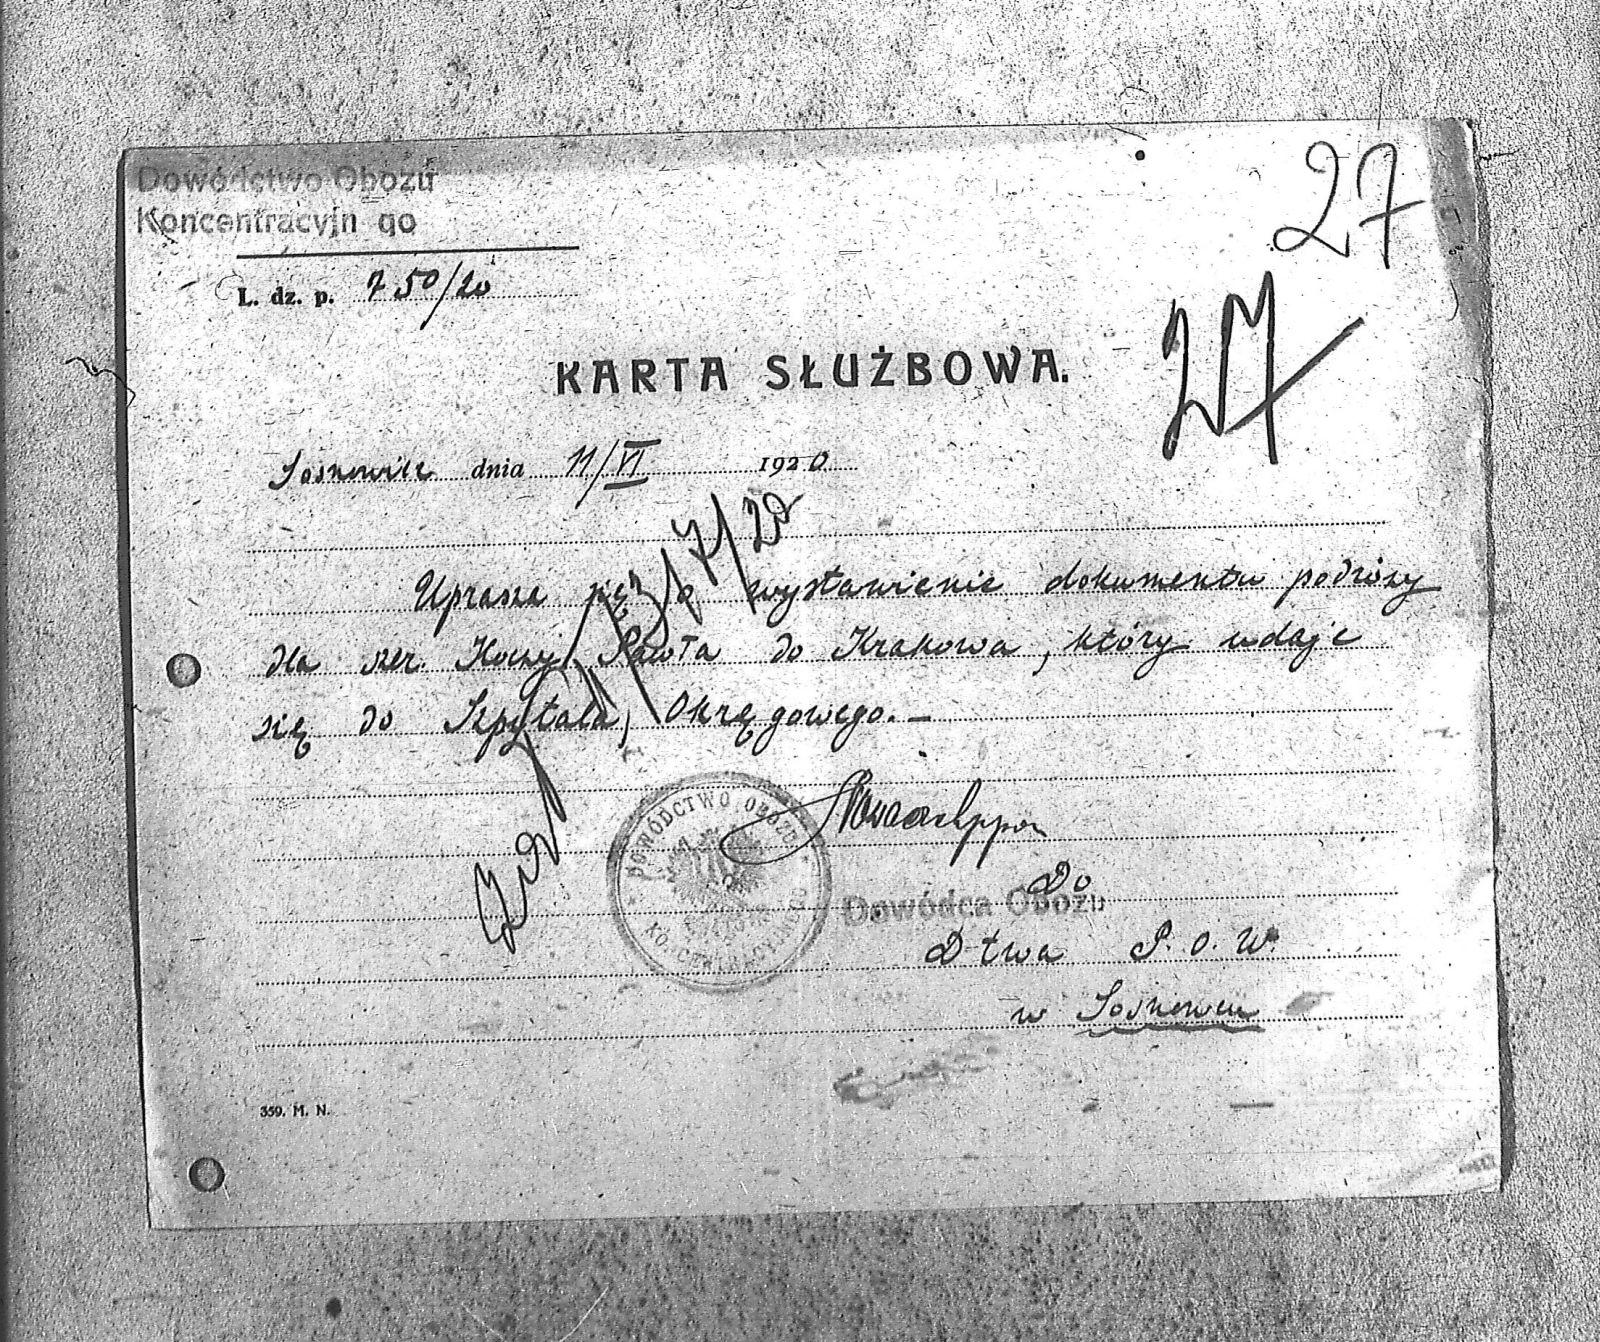 Dowództwo Obozu
Koncentracyjn go
27
L. dz. p. 750/20
27
KARTA SŁUŻBOWA.
Sosnowiec dnia 11/VI 1920
Uprasza się o wystawienie dokumentu podróży
dla szer. Koczy Pawła do Krakowa, który udaje
się do Szpitala Okręgowego. —
DOWÓDCTWO OBOZU
KONCENTRACYJNEGO
ppor
Dowódca Obozu
Do
D-twa P. O. W.
w Sosnowcu
359. M. N.